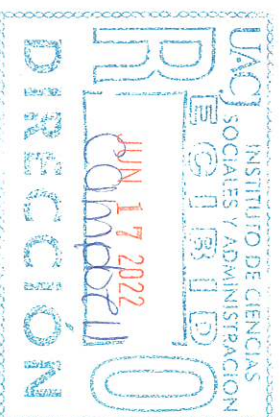 UACJ INSTITUTO DE CIENCIAS
SOCIALES Y ADMINISTRACIÓN
RECIBIDO
JUN 17 2022
Campbell
DIRECCIÓN